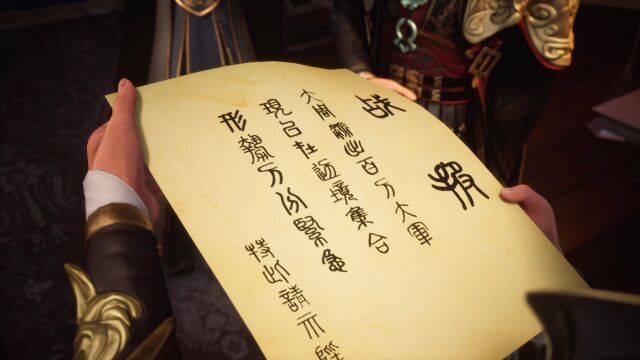 战报
大周派出百万大軍
現已在边境集合
形勢万分緊急
特此請示